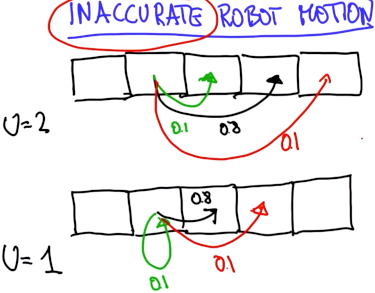 INACCURATE ROBOT MOTION
U=2
0.1
0.8
0.1
0.8
U=1
0.1
0.1